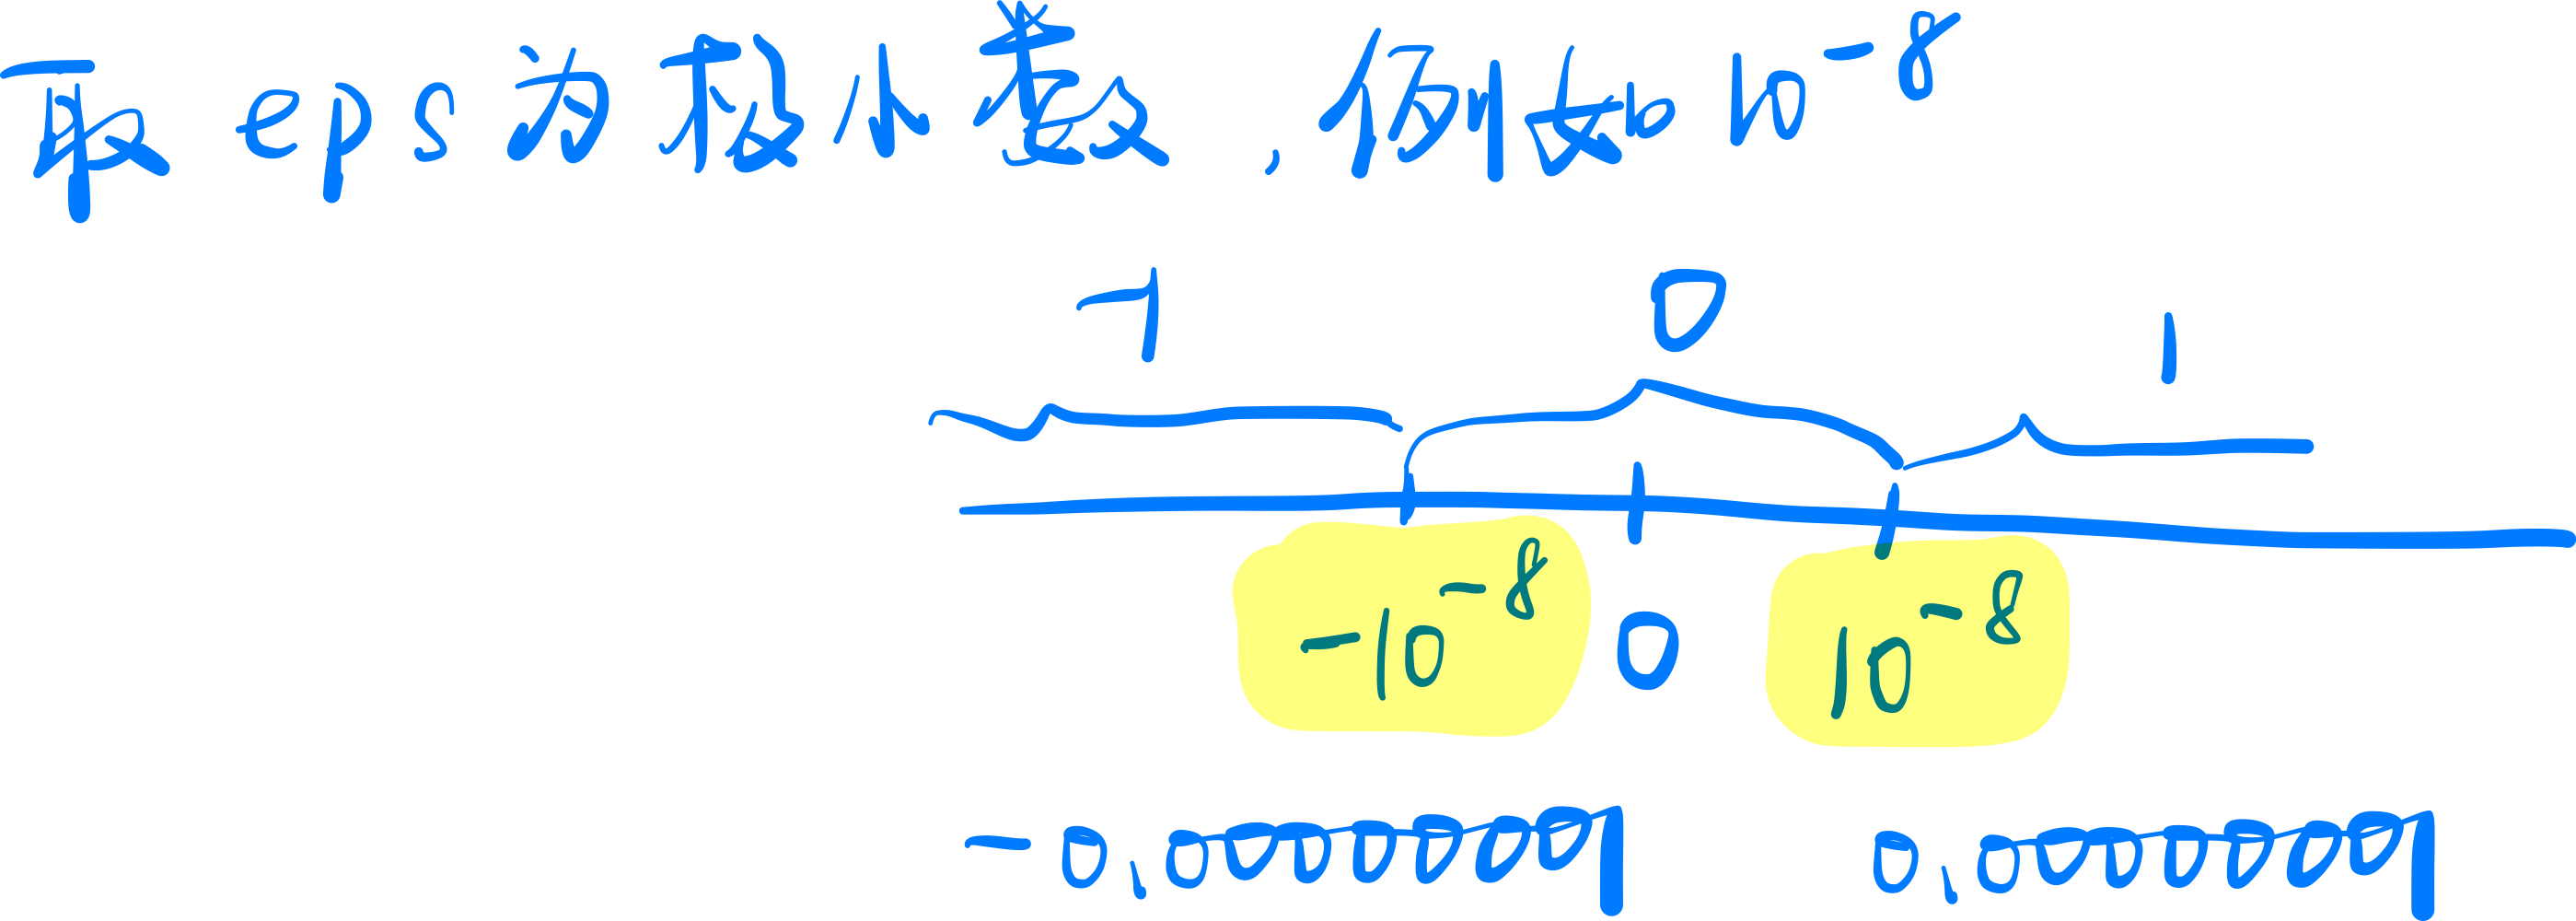 取 eps 为极小数，例如 10⁻⁸
-1 0 1
-10⁻⁸ 0 10⁻⁸
-0.00000001 0.00000001